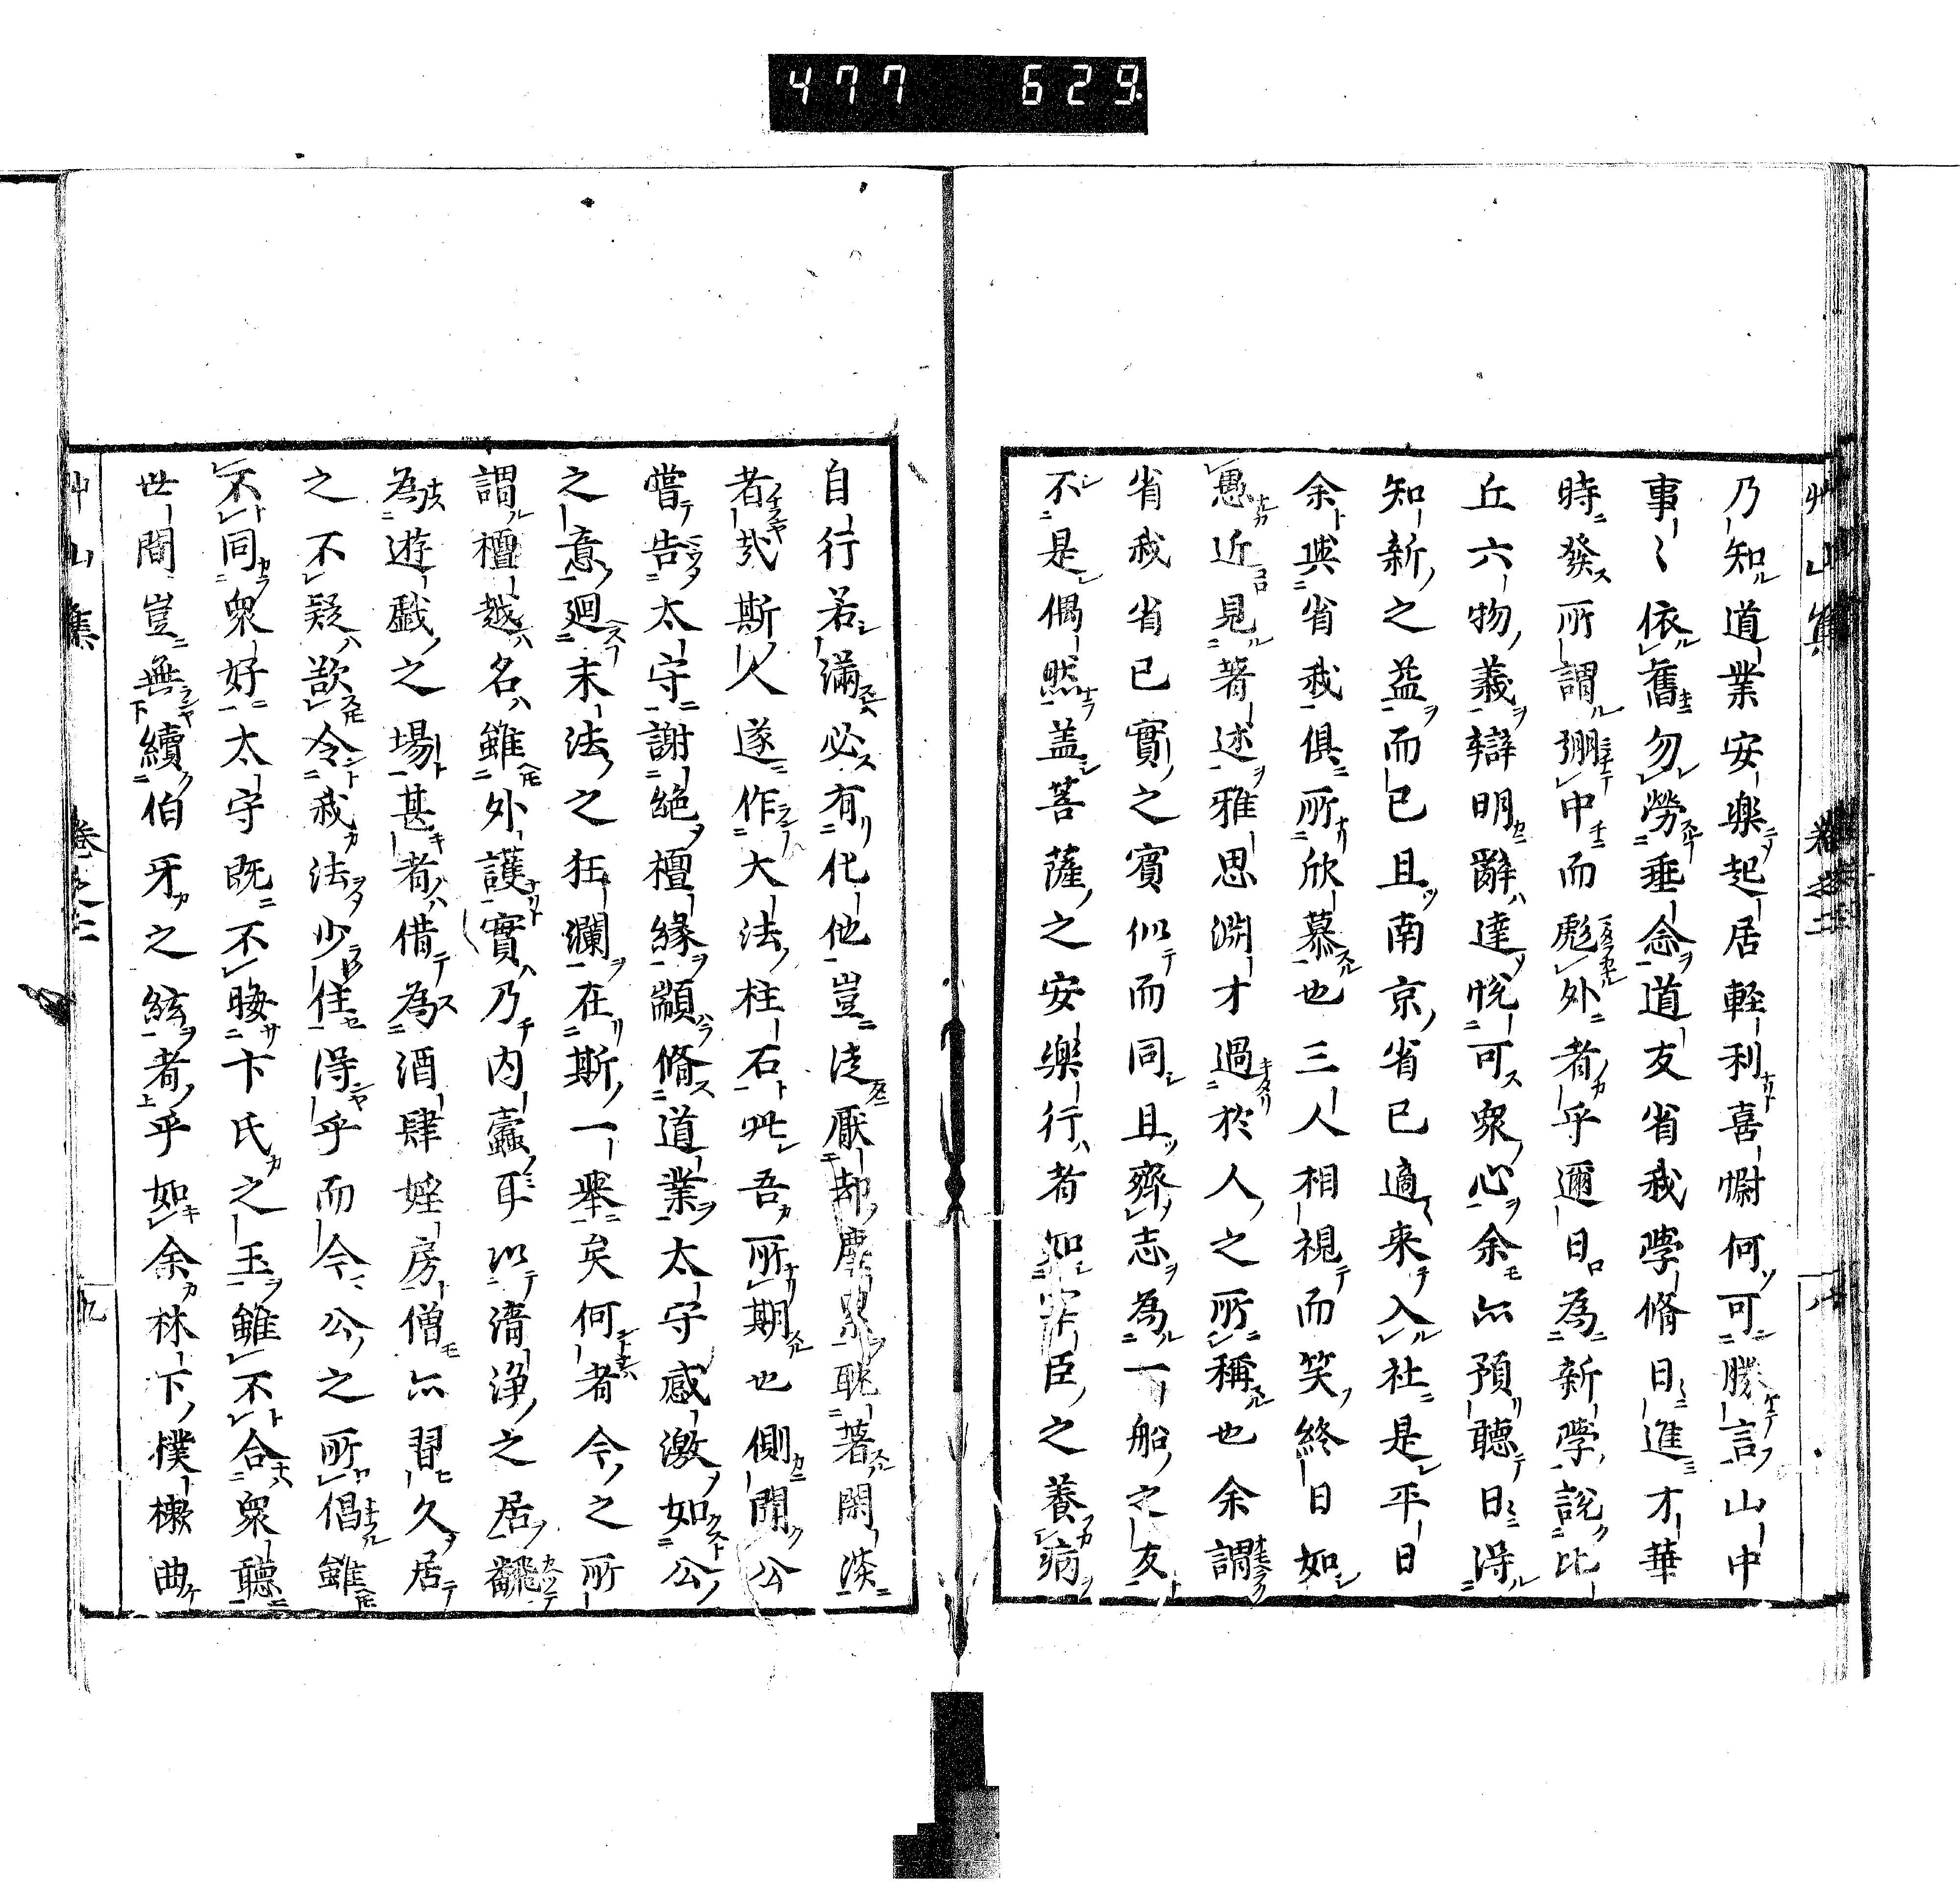 477 629
艸山集 卷之二 八
乃知道業安樂起居輕利喜慰何可勝言山中
事〻依舊勿勞垂念道友省我學脩日進才華
時發所謂弸中而彪外者乎邇日為新學說比
丘六物義辯明辭達悅可衆心余亦預聽日得
知新之益而已且南京省已適来入社是平日
余與省我俱所欣慕也三人相視而笑終日如
愚近見著述雅思淵才過於人之所稱也余謂
省我省已實之賓似而同且齊志為一船之友
不是偶然盖菩薩之安樂行者如臣之養病
自行若滿必有化他豈徒厭却塵累耽著閑淡
者哉斯人遂作大法柱石此吾所期也側聞公
嘗告太守謝絕檀緣顓脩道業太守感激如公
之意廻末法之狂瀾在斯一舉矣何者今之所
謂檀越名雖外護實乃內蠹耳以清淨之居翻
為遊戲之場甚者借為酒肆婬房僧亦習久居
之不疑欲令我法少住得乎而今公之所倡雖
不同衆好太守既不晦卞氏之玉雖不合衆聽
世間豈無續伯牙之絃者乎如余林下樸樕曲
艸山集 卷之二 九